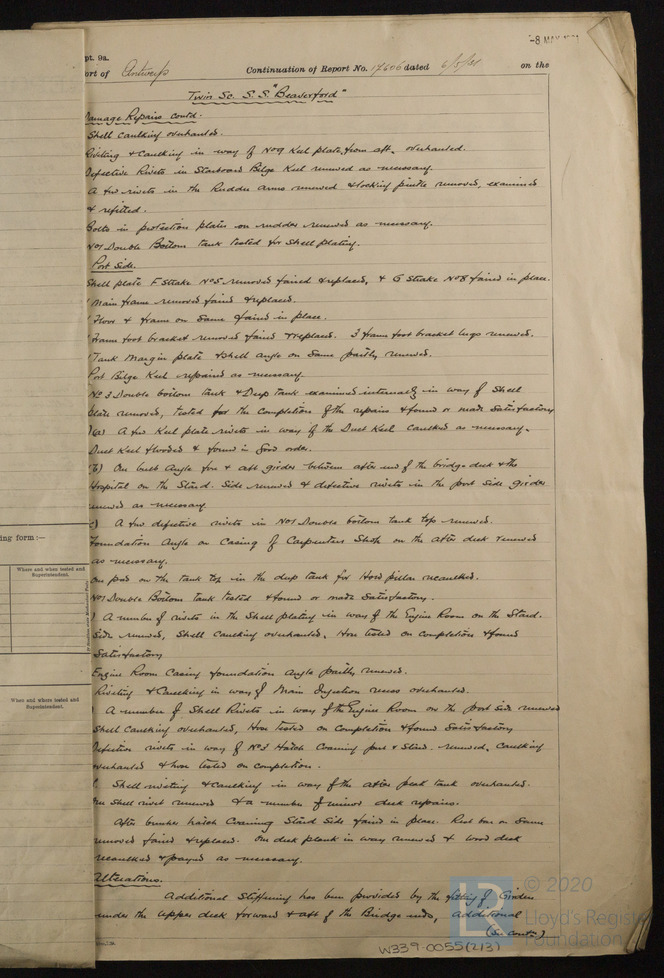 pt. 9a.
-8 MAY
ort of Antwerp Continuation of Report No. 17606 dated 6/5/31 on the
Twin Sc. S.S. "Beaverford"
Damage Repairs contd.
Shell caulking overhauled.
Riveting & Caulking in way of No 9 Keel plate, from aft, overhauled.
Defective Rivets in Starboard Bilge Keel renewed as necessary.
A few rivets in the Rudder arms renewed & locking pintle removed, examined
& refitted.
Bolts in protection plates on rudder renewed as necessary.
No 1 Double Bottom tank tested for Shell plating.
Port Side.
Shell plate F. Strake No 5 removed faired & replaced, & G Strake No 8 faired in place.
Main frame removed faired & replaced.
Floor & frame on Same faired in place.
Frame foot bracket removed faired & replaced. 3 frame foot bracket lugs renewed.
Tank Margin plate & Shell angle on Same partly renewed.
Port Bilge Keel repaired as necessary.
No 3 Double bottom tank & Deep tank examined internally in way of Shell
plate removed, tested for the Completion of the repairs & found or made Satisfactory
(a) A few Keel plate rivets in way of the Duct Keel Caulked as necessary.
Duct Keel flooded & found in Good order.
(b) One bulb Angle fore & aft girder between after end of the bridge deck & the
Hospital on the Starbd. Side renewed & defective rivets in the port Side girder
renewed as necessary
c) A few defective rivets in No 1 Double bottom tank top renewed.
Foundation Angle on Casing of Carpenters Shop on the after deck renewed
as necessary.
One pad on the tank top in the deep tank for Hold pillar recaulked.
No 1 Double Bottom tank tested & found or made Satisfactory.
) A number of rivets in the Shell plating in way of the Engine Room on the Starbd.
Side renewed, Shell Caulking overhauled, Hose tested on completion & found
Satisfactory
Engine Room Casing foundation angle partly renewed.
Riveting & Caulking in way of Main Injection recess overhauled.
) A number of Shell Rivets in way of the Engine Room on the port Side renewed
Shell Caulking overhauled, Hose tested on Completion & found Satisfactory
Defective rivets in way of No 3 Hatch Coaming port & Starbd. renewed, Caulking
overhauled & hose tested on completion.
Shell riveting & Caulking in way of the after peak tank overhauled.
One Shell rivet renewed & a number of minor deck repairs.
After bunker hatch Coaming Starbd Side faired in place. Rest bar on Same
removed faired & replaced. One deck plank in way renewed & wood deck
recaulked & payed as necessary.
Alterations.
Additional Stiffening has been provided by the fitting of Girders
under the upper deck forward & aft of the Bridge ends, additional
(See contn.)
W339-0055(2/3)
ing form :—
Where and when tested and Superintendent.
When and where tested and Superintendent.
© 2020
Lloyd's Register
Foundation